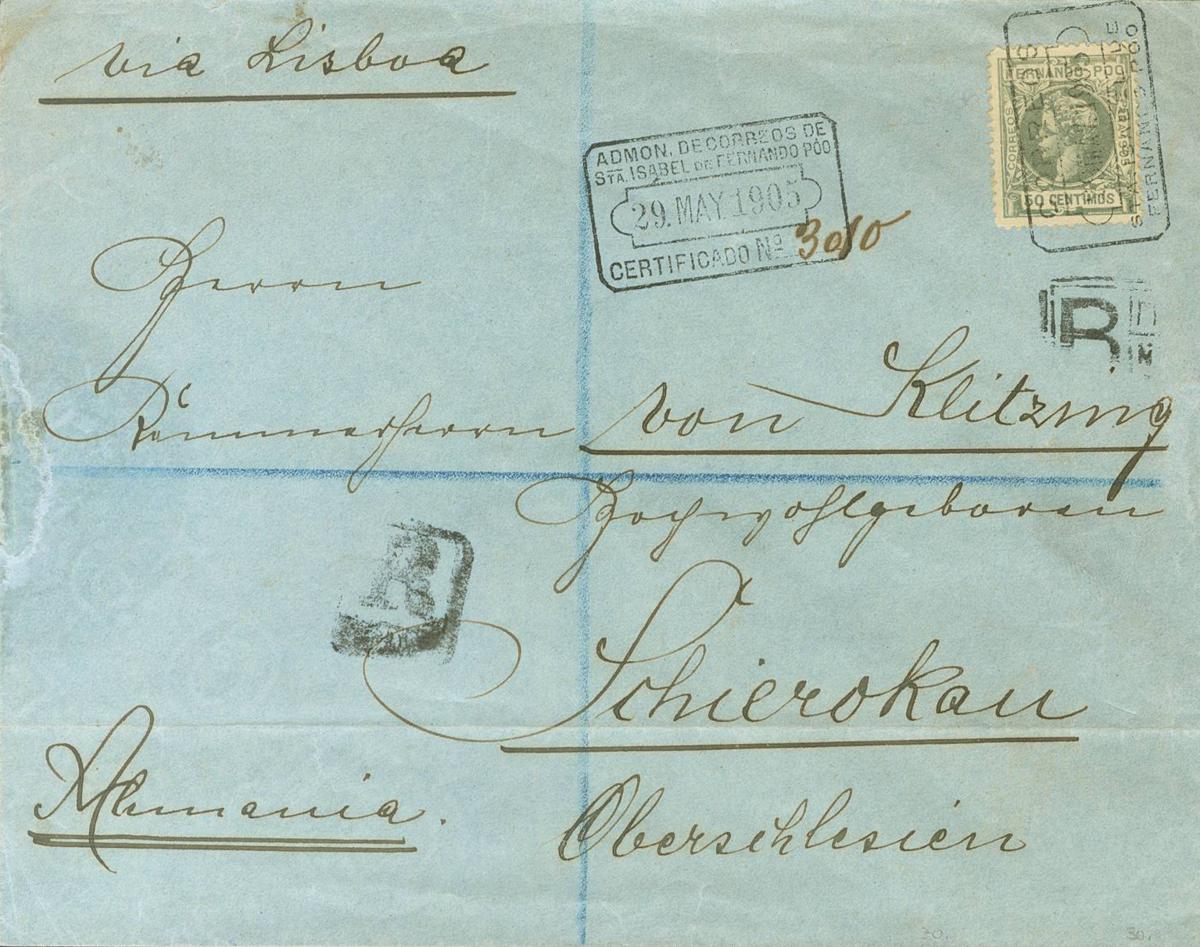 via Lisboa
FERNANDO-POO
CORREOS
50 CENTIMOS
FERNANDO POO
ADMON. DE CORREOS DE
STA. ISABEL DE FERNANDO PÓO
29. MAY 1905
CERTIFICADO Nº 3010
R
Herrn
Kammerherrn von Klitzing
Hochwohlgeboren
R
Schierokau
Almania.
Oberschlesien
30.
30.